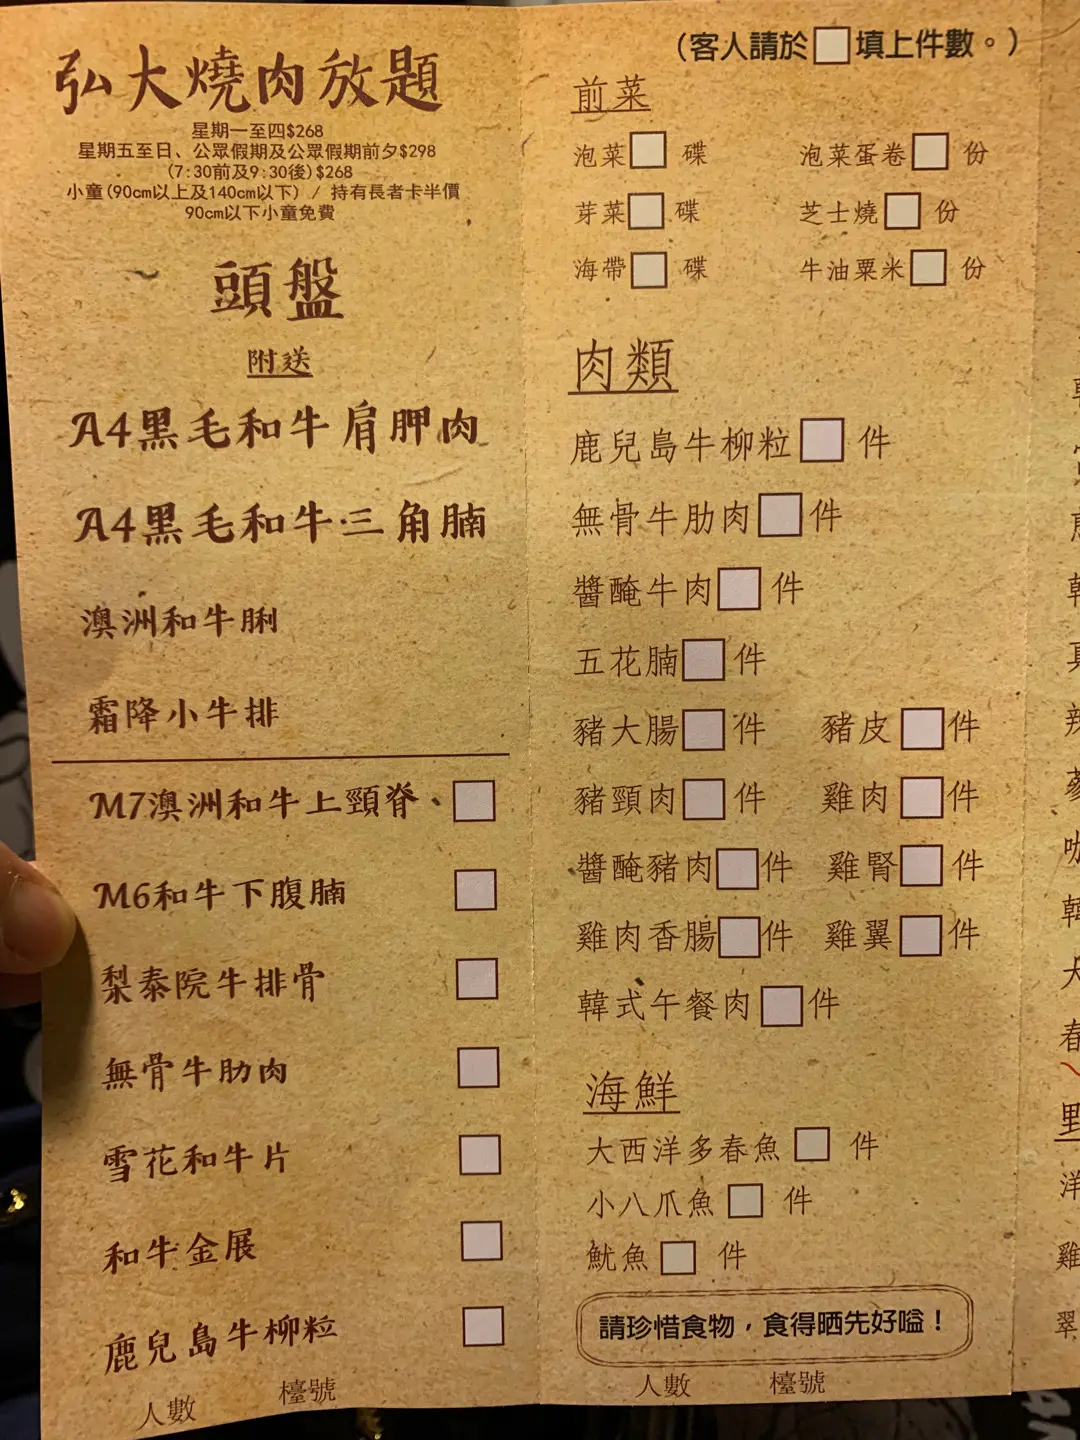 弘大燒肉放題
星期一至四$268
星期五至日、公眾假期及公眾假期前夕$298
(7:30前及9:30後)$268
小童(90cm以上及140cm以下) / 持有長者卡半價
90cm以下小童免費
頭盤
附送
A4黑毛和牛肩胛肉
A4黑毛和牛三角腩
澳洲和牛脷
霜降小牛排
M7澳洲和牛上頸脊、
M6和牛下腹腩
梨泰院牛排骨
無骨牛肋肉
雪花和牛片
和牛金展
鹿兒島牛柳粒
人數 檯號
（客人請於 填上件數。）
前菜
泡菜 碟 泡菜蛋卷 份
芽菜 碟 芝士燒 份
海帶 碟 牛油粟米 份
肉類
鹿兒島牛柳粒 件
無骨牛肋肉 件
醬醃牛肉 件
五花腩 件
豬大腸 件 豬皮 件
豬頸肉 件 雞肉 件
醬醃豬肉 件 雞腎 件
雞肉香腸 件 雞翼 件
韓式午餐肉 件
海鮮
大西洋多春魚 件
小八爪魚 件
魷魚 件
請珍惜食物，食得晒先好嗌！
人數 檯號